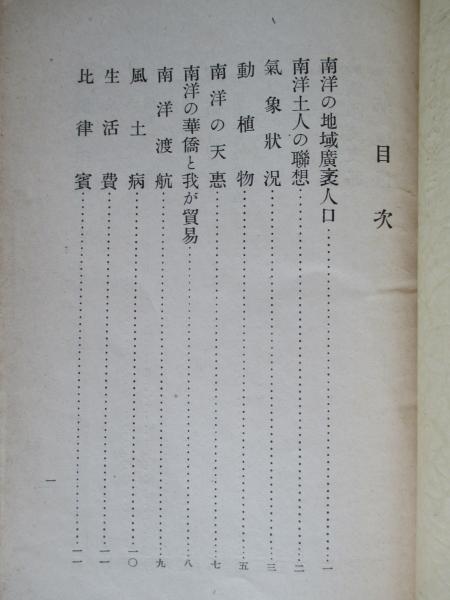 目次
南洋の地域廣袤人口……一
南洋土人の聯想……二
氣象狀況……三
動植物……五
南洋の天惠……七
南洋の華僑と我が貿易……八
南洋渡航……九
風土病……一〇
生活費……一一
比律賓……一一
一